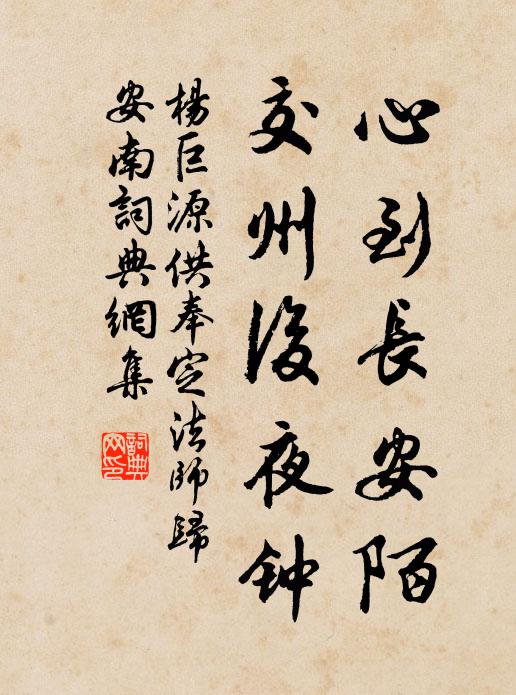 心到長安陌
交州後夜钟
楊巨源供奉定法師歸
安南詞典網集
詞典
网印